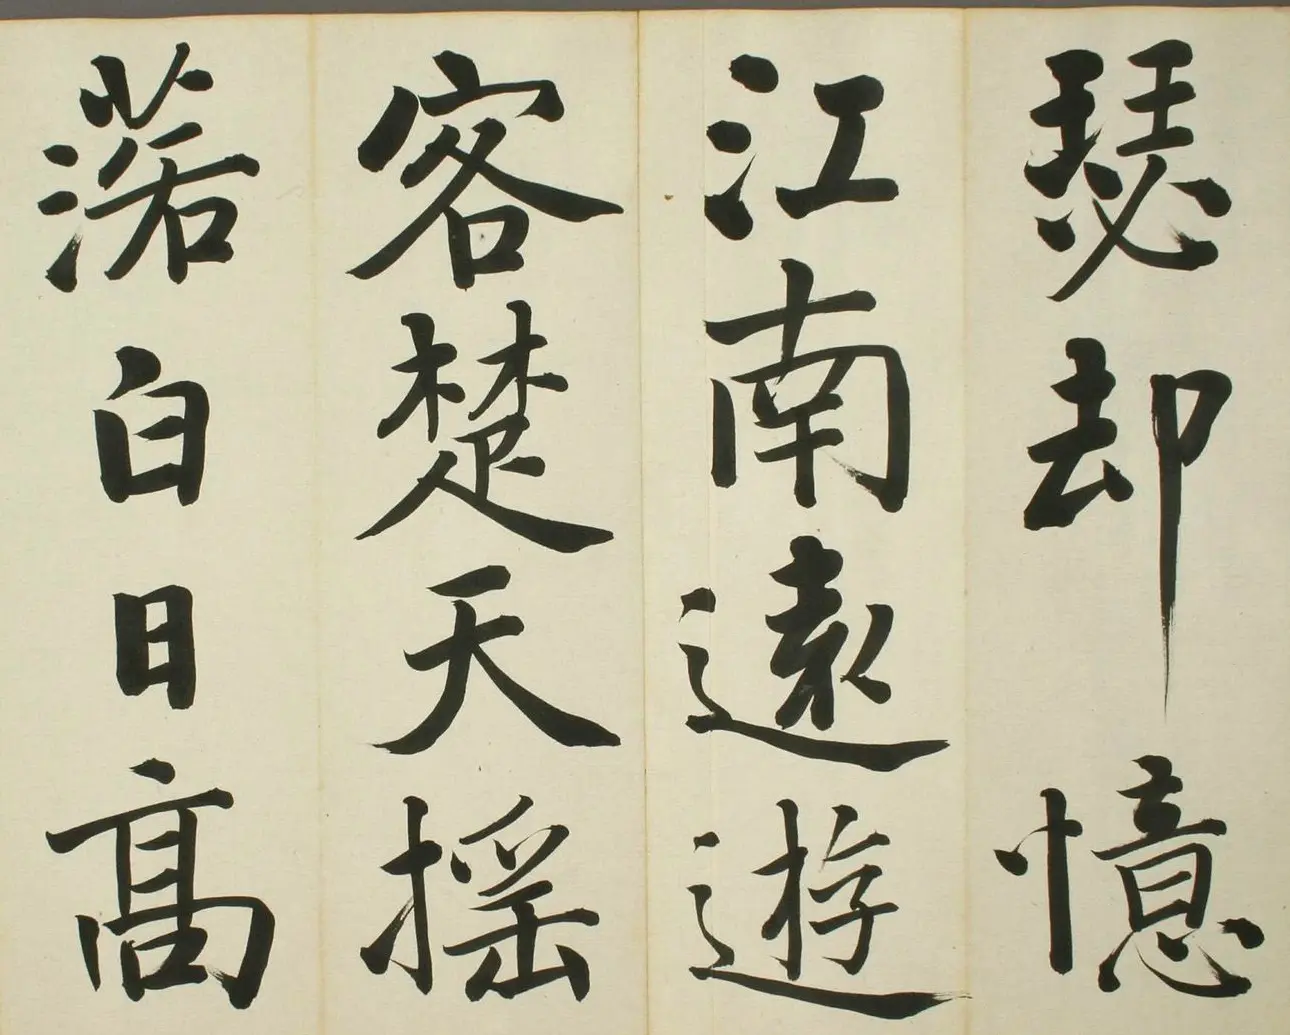 瑟却憶
江南遠遊
客楚天搖
落白日高